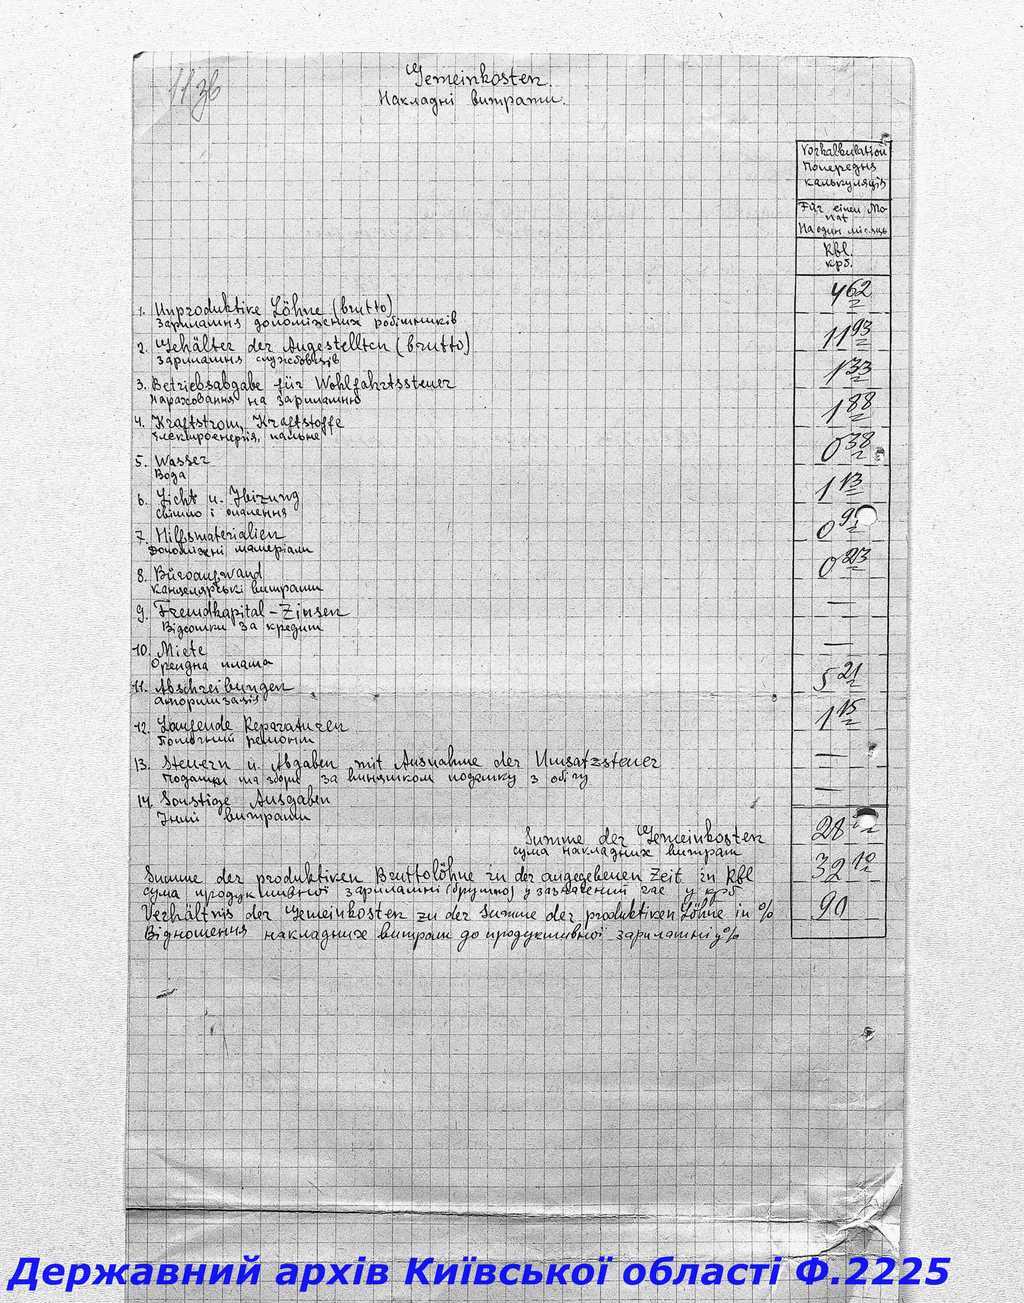 1136
Gemeinkosten.
Накладні витрати.
Vorkalkulation
Попередня
калькуляція
Für einen Mo-
nat
На один місяць
Rbl.
крб.
1. Unproduktive Löhne (brutto) 4 62
Зарплатня допоміжних робітників
2. Gehälter der Angestellten (brutto) 11 93
Зарплатня службовців
3. Betriebsabgabe für Wohlfahrtssteuer 1 33
Нараховання на зарплатню
4. Kraftstrom, Kraftstoffe 1 88
Електроенергія, пальне
5. Wasser 0 38
Вода
6. Licht u. Heizung 1 13
Світло і опалення
7. Hilfsmaterialien 0
Допоміжні матеріали
8. Büroaufwand 0 23
Канцелярські витрати
9. Fremdkapital-Zinsen —
Відсотки за кредит
10. Miete —
Орендна плата
11. Abschreibungen 5 21
Амортизація
12. Laufende Reparaturen 1 15
Поточний ремонт
13. Steuern u. Abgaben mit Ausnahme der Umsatzsteuer —
Податки та збори за винятком податку з обігу
14. Sonstige Ausgaben —
Інші витрати
Summe der Gemeinkosten 28
сума накладних витрат
Summe der produktiven Bruttolöhne in der angegebenen Zeit in Rbl 32 10
сума продуктивної зарплатні (брутто) у зазначений час у крб
Verhältnis der Gemeinkosten zu der Summe der produktiven Löhne in % 90
Відношення накладних витрат до продуктивної зарплатні у %
Державний архів Київської області Ф.2225